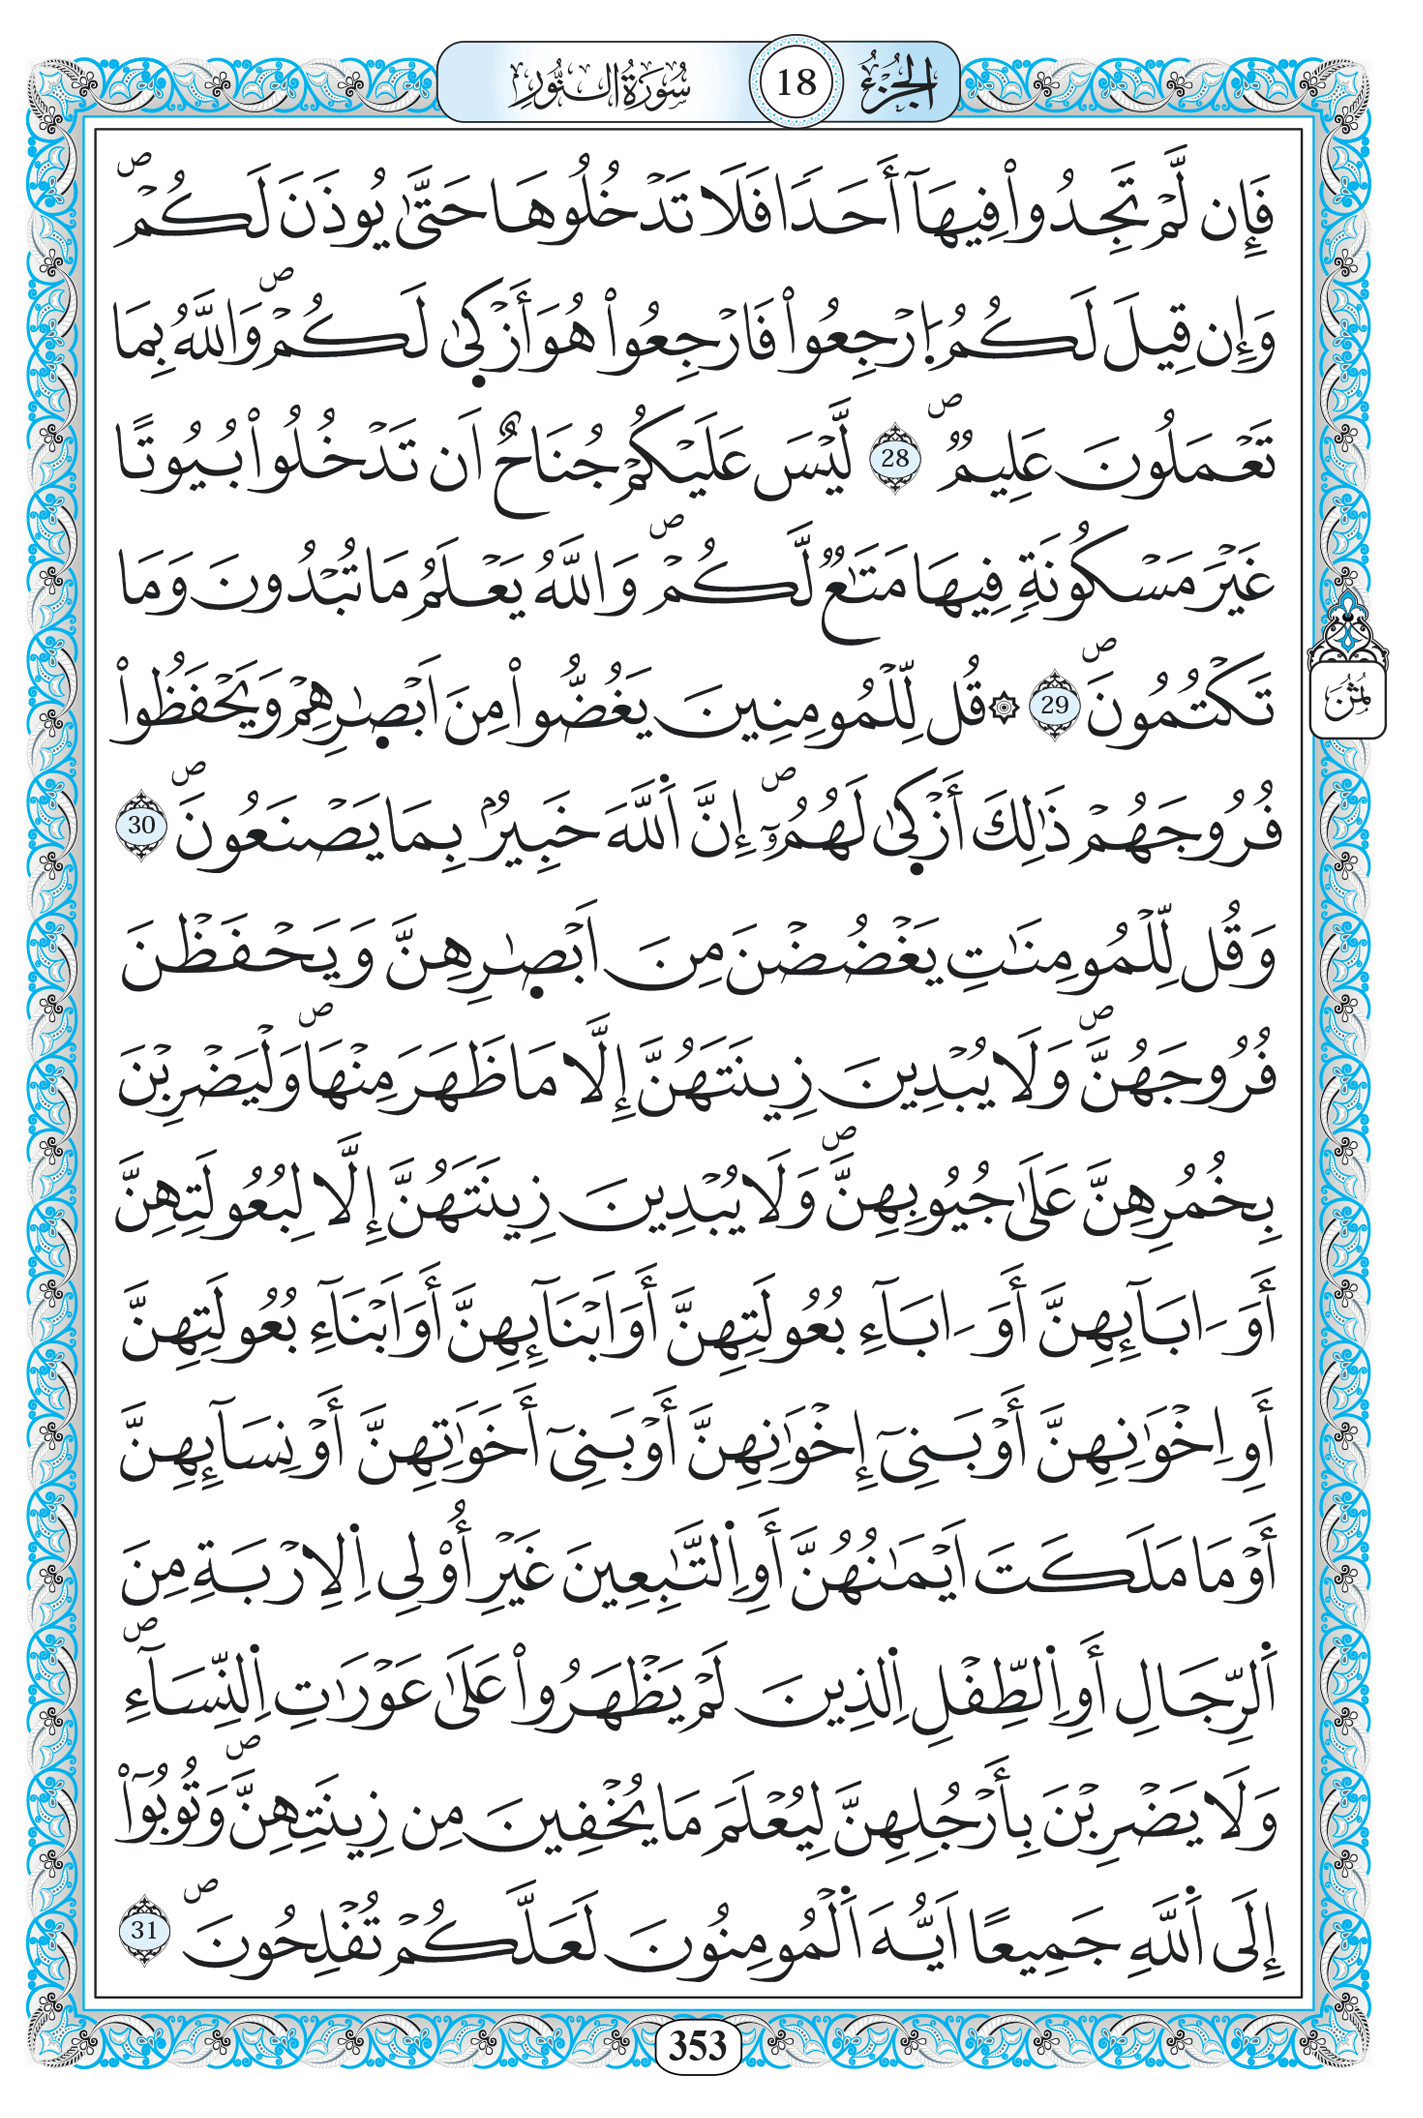 الجزء 18 سورة النور
فَإِن لَّمْ تَجِدُواْ فِيهَآ أَحَدٗا فَلَا تَدْخُلُوهَا حَتَّىٰ يُوذَنَ لَكُمْۖ
وَإِن قِيلَ لَكُمُ اُ۪رْجِعُواْ فَارْجِعُواْ هُوَ أَزْك۪ىٰ لَكُمْۖ وَاللَّهُ بِمَا
تَعْمَلُونَ عَلِيمٞۖ 28 لَّيْسَ عَلَيْكُمْ جُنَاحٌ اَن تَدْخُلُواْ بُيُوتًا
غَيْرَ مَسْكُونَةٖ فِيهَا مَتَٰعٞ لَّكُمْۖ وَاللَّهُ يَعْلَمُ مَا تُبْدُونَ وَمَا
تَكْتُمُونَۖ 29 ۞ قُل لِّلْمُومِنِينَ يَغُضُّواْ مِنَ اَبْصٰ۪رِهِمْ وَيَحْفَظُواْ
فُرُوجَهُمْ ذَٰلِكَ أَزْك۪ىٰ لَهُمُۥٓۖ إِنَّ اَ۬للَّهَ خَبِيرُۢ بِمَا يَصْنَعُونَۖ 30
وَقُل لِّلْمُومِنَٰتِ يَغْضُضْنَ مِنَ اَبْصٰ۪رِهِنَّ وَيَحْفَظْنَ
فُرُوجَهُنَّۖ وَلَا يُبْدِينَ زِينَتَهُنَّ إِلَّا مَا ظَهَرَ مِنْهَاۖ وَلْيَضْرِبْنَ
بِخُمُرِهِنَّ عَلَىٰ جُيُوبِهِنَّۖ وَلَا يُبْدِينَ زِينَتَهُنَّ إِلَّا لِبُعُولَتِهِنَّ
أَوَ ـ ابَآئِهِنَّ أَوَ ـ ابَآءِ بُعُولَتِهِنَّ أَوَ اَبْنَآئِهِنَّ أَوَ اَبْنَآءِ بُعُولَتِهِنَّ
أَوِ اِخْوَٰنِهِنَّ أَوْ بَنِىٓ إِخْوَٰنِهِنَّ أَوْ بَنِىٓ أَخَوَٰتِهِنَّ أَوْ نِسَآئِهِنَّ
أَوْ مَا مَلَكَتَ اَيْمَٰنُهُنَّ أَوِ اِ۬لتَّٰبِعِينَ غَيْرِ أُوْلِى اِ۬لِارْبَةِ مِنَ
اَ۬لرِّجَالِ أَوِ اِ۬لطِّفْلِ اِ۬لذِينَ لَمْ يَظْهَرُواْ عَلَىٰ عَوْرَٰتِ اِ۬لنِّسَآءِۖ
وَلَا يَضْرِبْنَ بِأَرْجُلِهِنَّ لِيُعْلَمَ مَا يُخْفِينَ مِن زِينَتِهِنَّۖ وَتُوبُوٓاْ
إِلَى اَ۬للَّهِ جَمِيعًا اَيُّهَ اَ۬لْمُومِنُونَ لَعَلَّكُمْ تُفْلِحُونَۖ 31
ثُمُن
353